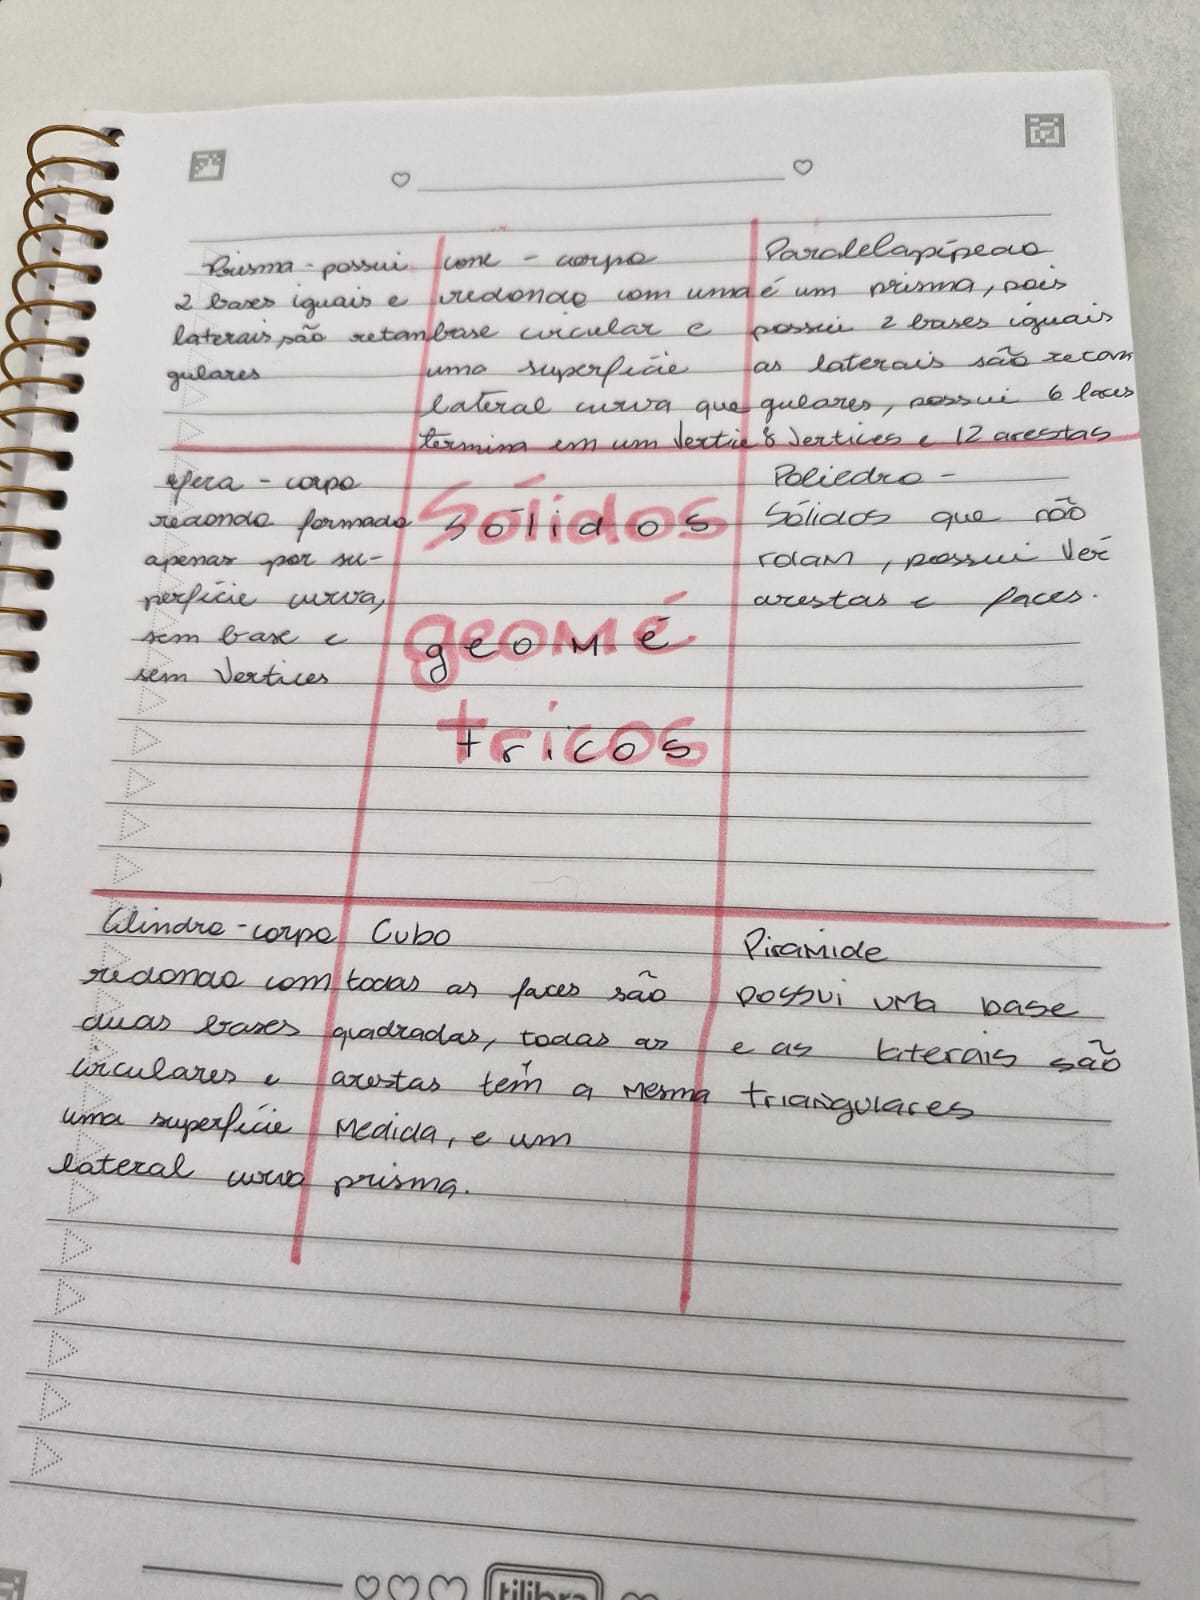 Prisma - possui
2 bases iguais e
laterais são retan
gulares
cone - corpo
redondo com uma
base circular e
uma superfície
lateral curva que
termina em um vertice
Paralelapípedo
é um prisma, pois
possui 2 bases iguais
as laterais são retan
gulares, possui 6 faces
8 vertices e 12 arestas
efera - corpo
redondo formado
apenas por su-
perfície curva,
sem base e
sem vertices
Sólidos
geomé
tricos
Poliedro -
Sólidos que não
rolam, possui Vér
arestas e faces.
Cilindro - corpo
redondo com
duas bases
circulares e
uma superfície
lateral curva
Cubo
todas as faces são
quadradas, todas as
arestas tem a mesma
medida, e um
prisma.
Piramide
possui uma base
e as laterais são
triangulares
tilibra